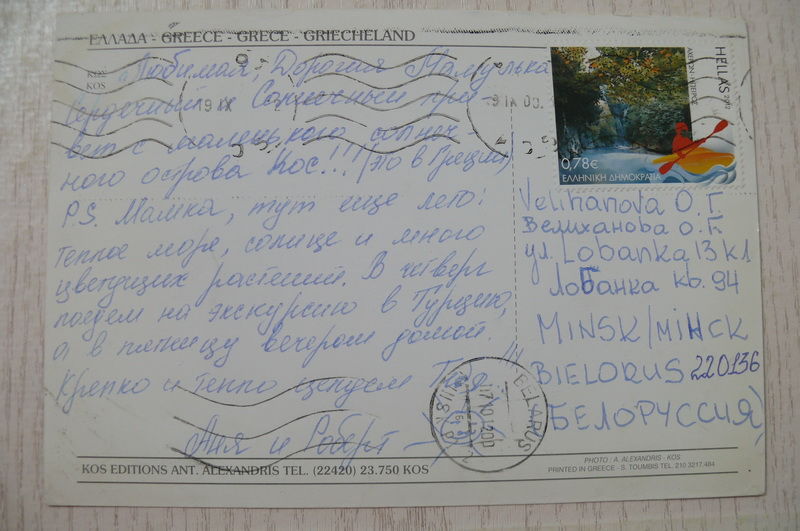 ΕΛΛΑΔΑ - GREECE - GRECE - GRIECHELAND
ΚΩΣ
KOS
Любимая, Дорогая Мамулька
Сердечный и Солнечный при-
вет с маленького солнеч-
ного острова Кос!!! (это в Греции)
P.S. Мамка, тут еще лето:
теплое море, солнце и много
цветущих растений. В четверг
поедем на экскурсию в Турцию,
а в пятницу вечером домой.
Крепко и тепло целуем Тебя
Аня и Роберт
19 IX
9 IX 09
HELLAS 2012
0,78€
ΕΛΛΗΝΙΚΗ ΔΗΜΟΚΡΑΤΙΑ
Velihanova O. Г.
Велиханова О. Г.
ул. Lobanka 13 к1
Лобанка кв. 94
MINSK/МІНСК
BIELORUS 220136
(БЕЛОРУССИЯ)
BELARUS
KOS EDITIONS ANT. ALEXANDRIS TEL. (22420) 23.750 KOS
PHOTO : A. ALEXANDRIS - KOS
PRINTED IN GREECE - S. TOUMBIS TEL. 210 3217.484